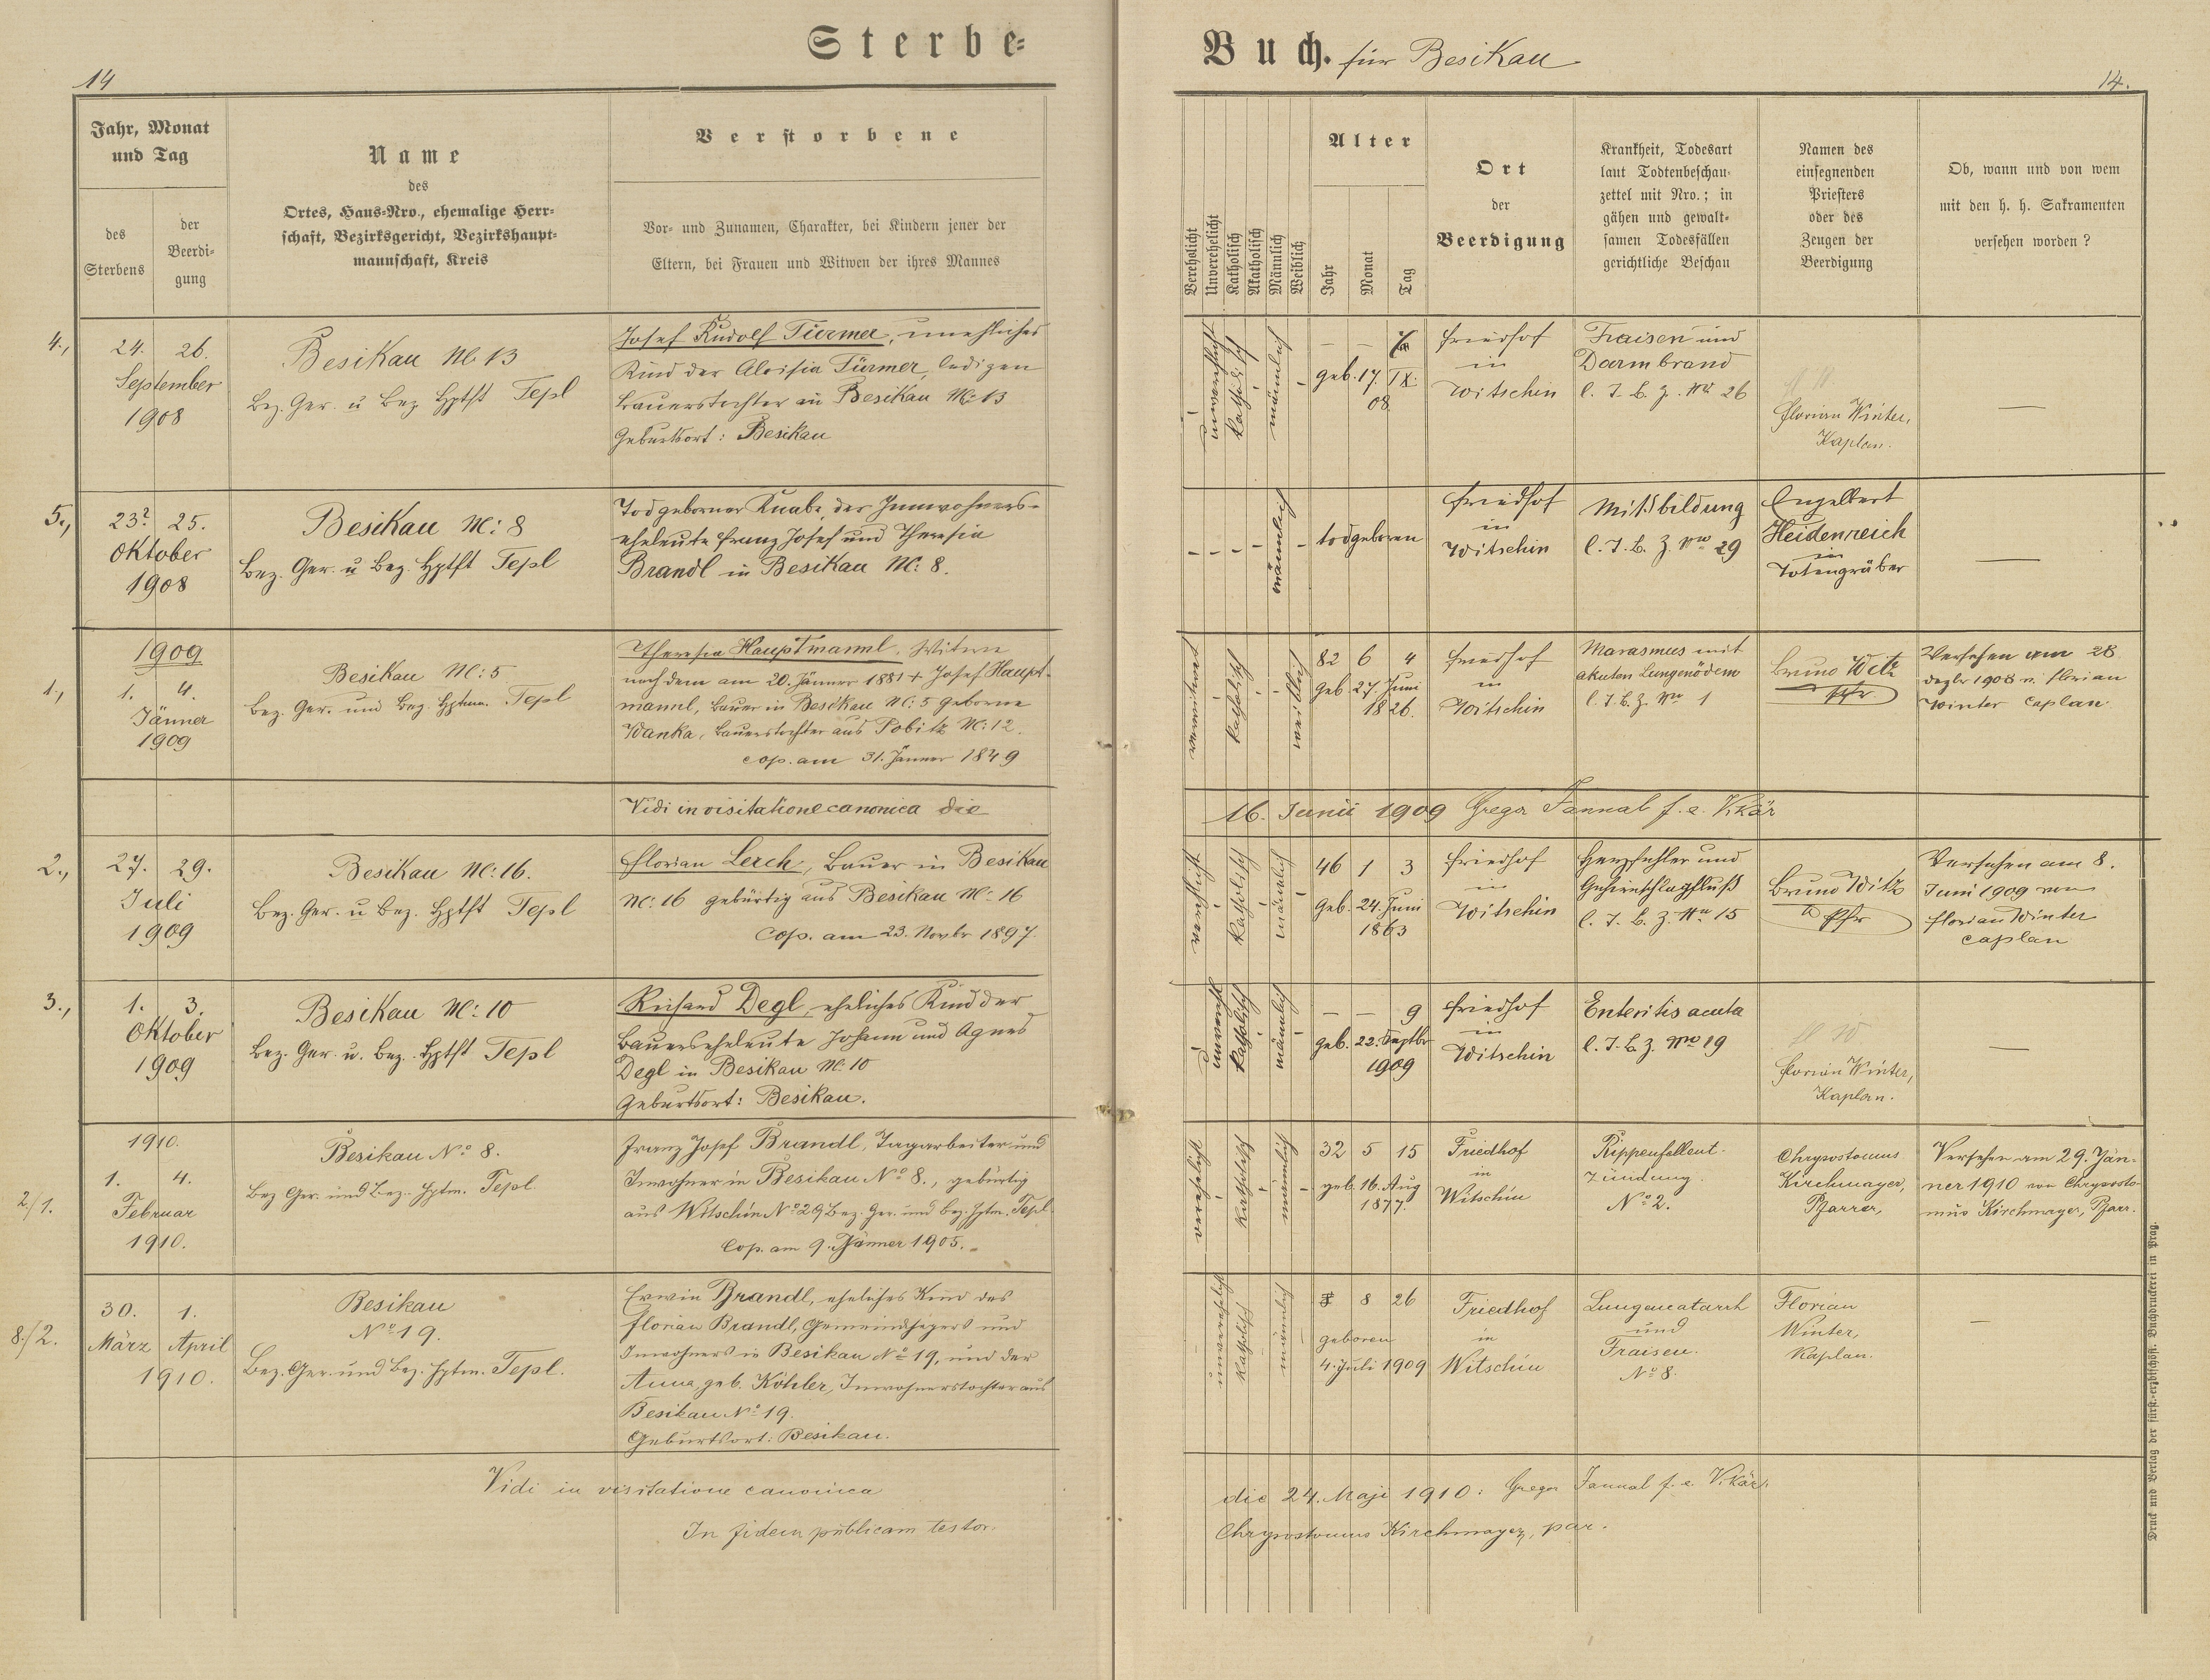 Sterbe-
Buch. für Besikau
14
14.
Jahr, Monat
und Tag
des
Sterbens
der
Beerdi-
gung
Name
des
Ortes, Haus-Nro., ehemalige Herr-
schaft, Bezirksgericht, Bezirkshaupt-
mannschaft, Kreis
Verstorbene
Vor- und Zunamen, Charakter, bei Kindern jener der
Eltern, bei Frauen und Witwen der ihres Mannes
Verehelicht
Unverehelicht
Katholisch
Akatholisch
Männlich
Weiblich
Alter
Jahr
Monat
Tag
Ort
der
Beerdigung
Krankheit, Todesart
laut Todtenbeschau-
zettel mit Nro.; in
gähen und gewalt-
samen Todesfällen
gerichtliche Beschau
Namen des
einsegnenden
Priesters
oder des
Zeugen der
Beerdigung
Ob, wann und von wem
mit den h. h. Sakramenten
versehen worden?
4.,
24. 26.
September
1908
Besikau N: 13
Bez. Ger. u Bez Hptft Tepl
Josef Rudolf Türmer, unehliches
Kind der Aloisia Türmer, ledigen
Bauerstochter in Besikau N: 13
Geburtsort: Besikau
unverehelicht
katholisch
männlich
— — 7
geb. 17. IX.
08
Friedhof
in
Witschin
Fraisen und
Darmbrand
l. T. B. Z. No 26
Florian Winter,
Kaplan.
—
5.,
23? 25.
Oktober
1908
Besikau N: 8
Bez. Ger. u Bez. Hptft Tepl
Todgeborner Knabe, der Innwohners-
eheleute Franz Josef und Theresia
Brandl in Besikau N: 8.
männlich
todgeboren
Friedhof
in
Witschin
Mißbildung
l. T. B. Z. No 29
Engelbert
Heidenreich
in
Totengräber
—
1.,
1909
1. 4.
Jänner
1909
Besikau N: 5
Bez. Ger. und Bez. Hptm. Tepl
Theresia Hauptmannl, Witwe
nach dem am 20. Jänner 1881 + Josef Haupt-
mannl, Bauer in Besikau N: 5 geborne
Wanka, Bauerstochter aus Pobitz N: 12.
cop. am 31. Jänner 1849
verwitwet
katholisch
weiblich
82 6 4
Geb. 27. Juni
1826.
Friedhof
in
Witschin
Marasmus mit
akuten Lungenödem
l. T. B. Z. No 1
Bruno Witz
Pfr
Versehen am 28
dezbr 1908 v. Florian
Winter Caplan.
Vidi in visitatione canonica die
16. Junii 1909 Gregor Fannal f. e. Vikär
2.,
27. 29.
Juli
1909
Besikau N: 16.
Bez. Ger. u Bez. Hptft Tepl
Florian Lerch, Bauer in Besikau
N: 16 gebürtig aus Besikau N: 16
Cop. am 23. Novbr 1897.
verehelicht
katholisch
männlich
46 1 3
Geb. 24. Juni
1863
Friedhof
in
Witschin
Herzfehler und
Gehirnschlagfluß
l. T. B. Z. No 15
Bruno Witz
Pfr
Versehen am 8.
Juni 1909 von
Florian Winter
Caplan
3.,
1. 3.
Oktober
1909
Besikau N: 10
Bez. Ger. u. Bez. Hptft Tepl
Richard Degl, eheliches Kind der
Bauerseheleute Johann und Agnes
Degl in Besikau N: 10
Geburtsort: Besikau.
unvereh.
katholisch
männlich
— — 9
geb. 22. Septbr
1909
Friedhof
in
Witschin
Enteritis acuta
l. T. B. Z. No 19
Florian Winter,
Kaplan.
—
2/1.
1910.
1. 4.
Februar
1910.
Besikau No 8.
Bez Ger. und Bez. Hptm. Tepl
Franz Josef Brandl, Tagarbeiter und
Inwohner in Besikau No 8., gebürtig
aus Witschin No 29 Bez. Ger. und Bez. Hptm. Tepl
Cop. am 9. Jänner 1905.
verehelicht
katholisch
männlich
32 5 15
geb. 16. Aug
1877.
Friedhof
in
Witschin
Rippenfellent-
zündung.
No 2.
Chrysostomus
Kirchmayer,
Pfarrer,
Versehen am 29. Jän-
ner 1910 von Chrysosto-
mus Kirchmayer, Pfarr.
8./2.
30. 1.
März April
1910.
Besikau
No 19.
Bez. Ger. und Bez. Hptm. Tepl.
Erwin Brandl, eheliches Kind des
Florian Brandl, Gemeindhegers und
Inwohners in Besikau No 19, und der
Anna, geb. Köhler, Inwohnerstochter aus
Besikau No 19.
Geburtsort: Besikau.
unverehelicht
katholisch
männlich
8 26
geboren
4. Juli 1909
Friedhof
in
Witschin
Lungencatarrh
und
Fraisen.
No 8.
Florian
Winter,
Kaplan.
—
Vidi in visitatione canonica
die 24. Maji 1910: Gregor Fannal f. e. Vikär.
In fidem publicam testor.
Chrysostomus Kirchmayer, par.
Druck und Verlag der fürst-erzbischöfl. Buchdruckerei in Prag.